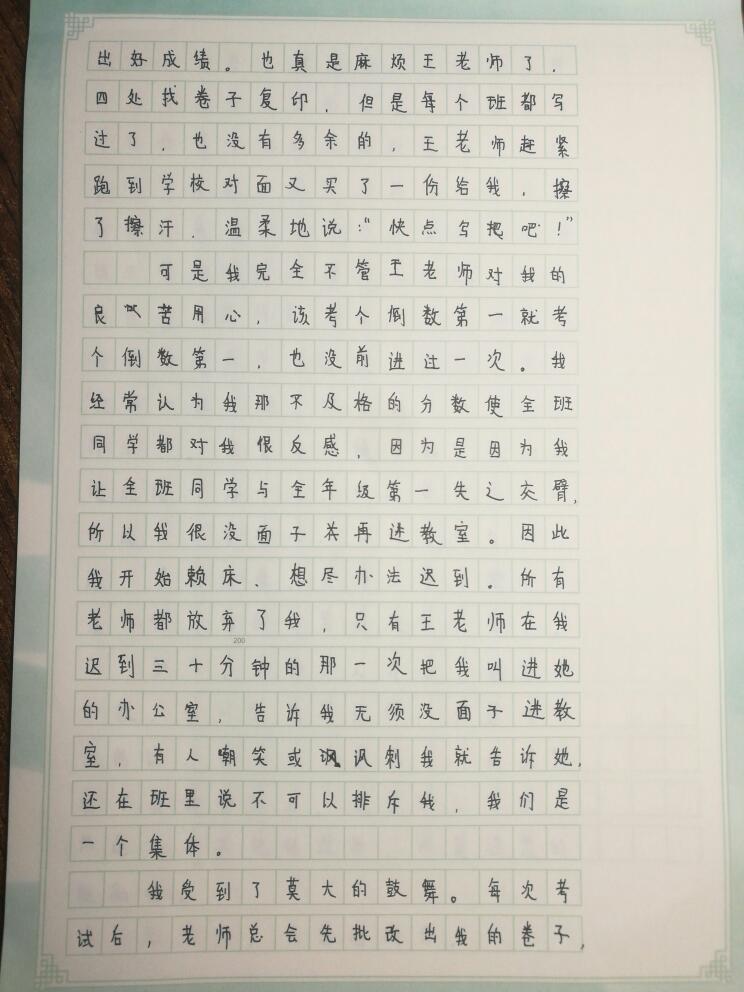 出好成绩。也真是麻烦王老师了，
四处找卷子复印，但是每个班都写
过了，也没有多余的，王老师赶紧
跑到学校对面又买了一份给我，擦
了擦汗，温柔地说："快点写把吧！"
可是我完全不管王老师对我的
良苦用心，该考个倒数第一就考
个倒数第一，也没前进过一次。我
经常认为我那不及格的分数使全班
同学都对我很反感，因为是因为我
让全班同学与全年级第一失之交臂，
所以我很没面子再进教室。因此
我开始赖床、想尽办法迟到。所有
老师都放弃了我，只有王老师在我
200
迟到三十分钟的那一次把我叫进她
的办公室，告诉我无须没面子进教
室，有人嘲笑或讽刺我就告诉她，
还在班里说不可以排斥我，我们是
一个集体。
我受到了莫大的鼓舞。每次考
试后，老师总会先批改出我的卷子，